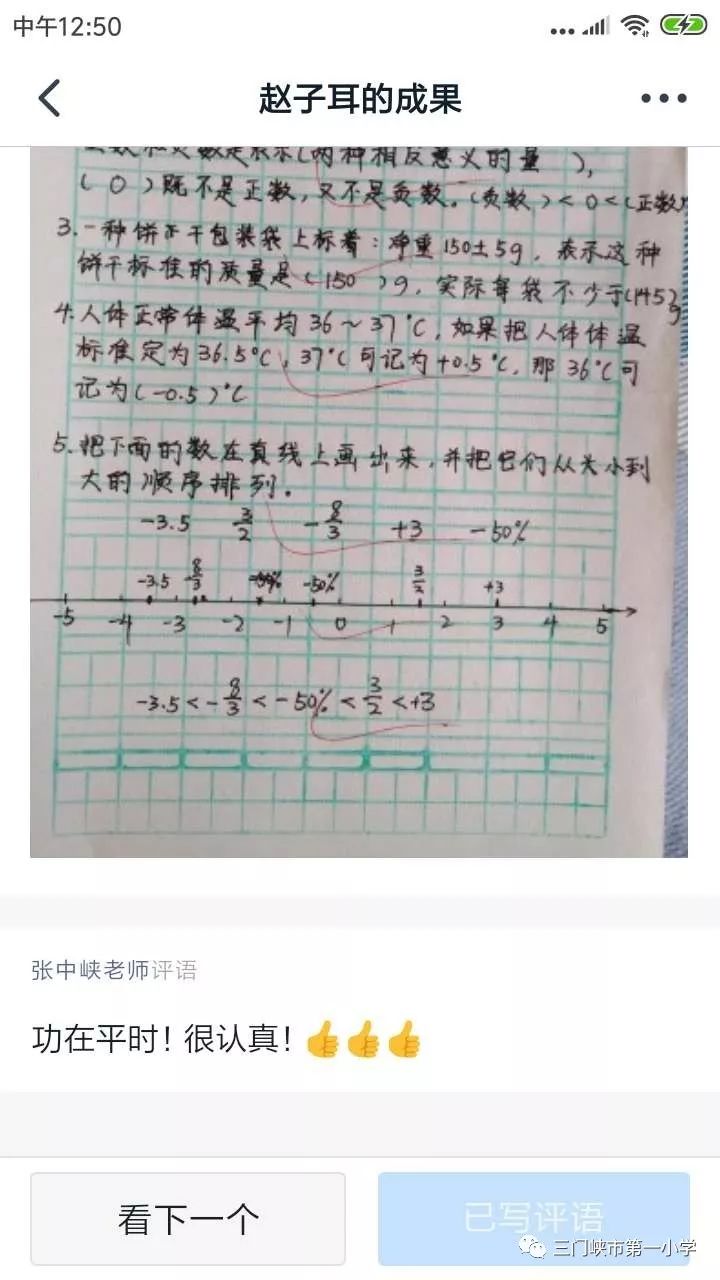 中午12:50
赵子耳的成果
正数和负数是表示(两种相反意义的量 ),
( 0 )既不是正数,又不是负数。(负数)<0<(正数)
3.一种饼干包装袋上标着:净重150±5g,表示这种
饼干标准的质量是(150 )g,实际每袋不少于(145)g
4.人体正常体温平均36~37℃,如果把人体体温
标准定为36.5℃,37℃可记为+0.5℃,那36℃可
记为(-0.5)℃
5.把下面的数在直线上画出来,并把它们从小到
大的顺序排列。
-3.5 3/2 -8/3 +3 -50%
-3.5 -8/3 -50% 3/2 +3
-5 -4 -3 -2 -1 0 1 2 3 4 5
-3.5<-8/3<-50%<3/2<+3
张中峡老师评语
功在平时!很认真!👍👍👍
看下一个
已写评语
三门峡市第一小学